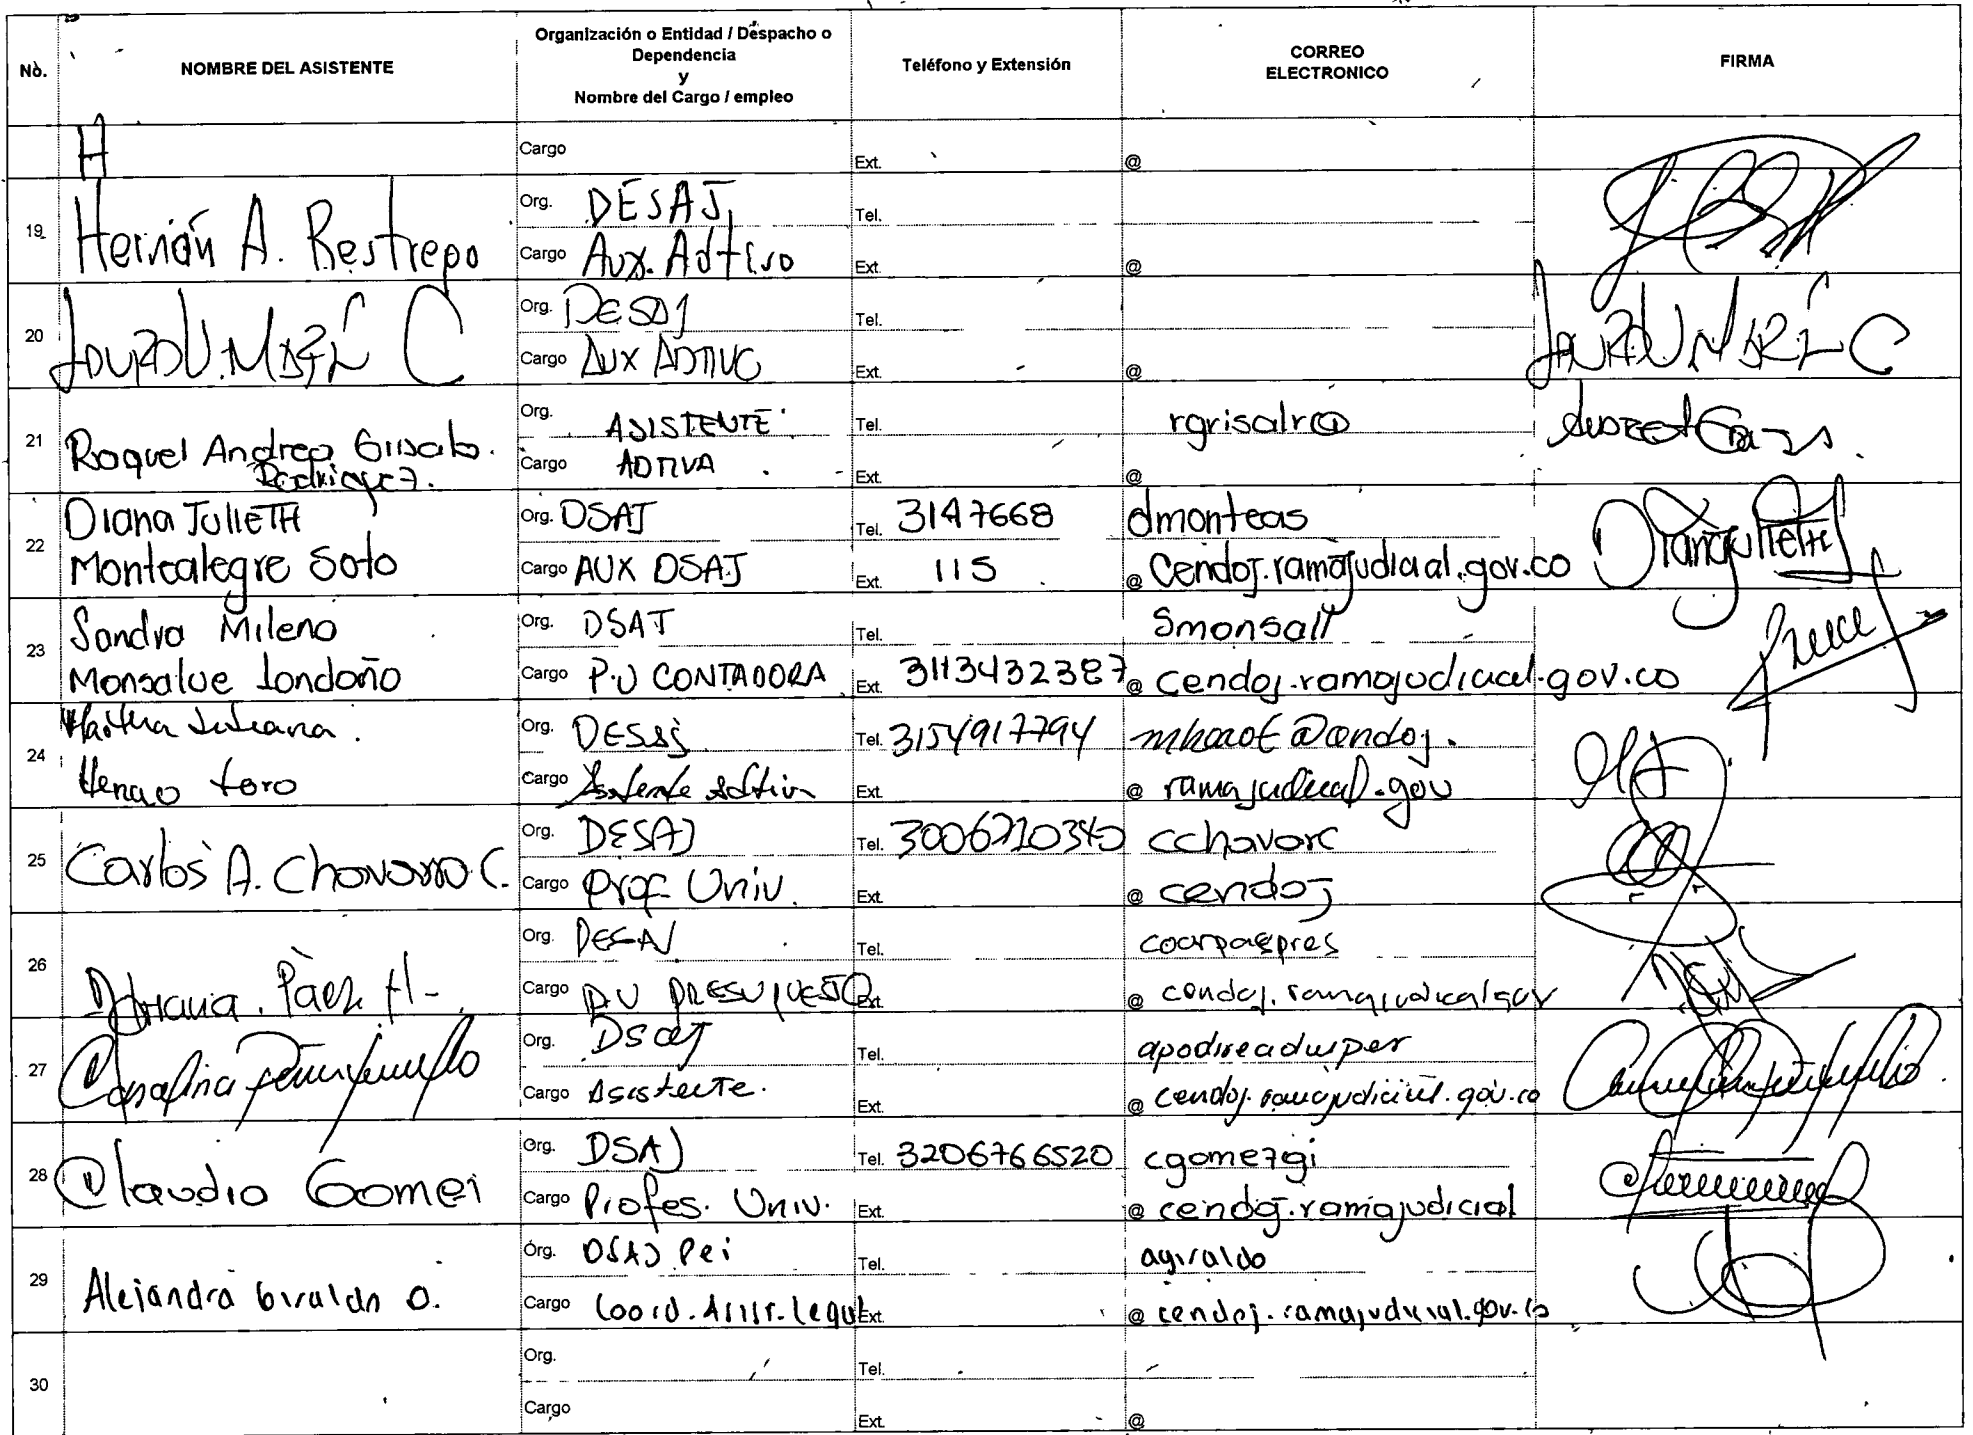 No.
NOMBRE DEL ASISTENTE
Organización o Entidad / Despacho o
Dependencia
y
Nombre del Cargo / empleo
Teléfono y Extensión
CORREO
ELECTRONICO
FIRMA
H
Cargo
Ext.
@
19
Hernán A. Restrepo
Org. DESAJ
Cargo Aux. Adtivo
Tel.
Ext.
@
20
Org. DESAJ
Cargo AUX ADTIVO
Tel.
Ext.
@
21
Raquel Andrea Grisales
Rodriguez.
Org. ASISTENTE
Cargo ADTIVA
Tel.
Ext.
rgrisalr@
@
22
Diana JulieTH
Montealegre Soto
Org. DSAJ
Cargo AUX DSAJ
Tel. 3147668
Ext. 115
dmonteas
@ cendoj.ramajudicial.gov.co
23
Sandra Milena
Monsalve Londoño
Org. DSAJ
Cargo P.U CONTADORA
Tel.
Ext. 3113432387
Smonsall
@ cendoj.ramajudicial.gov.co
24
Henao toro
Org. DESAJ
Cargo Asistente Adtiva
Tel. 3154917794
Ext.
mhenaot@cendoj.
@ ramajudicial.gov
25
Carlos A. Chavarro C.
Org. DESAJ
Cargo Prof. Univ.
Tel. 3006710340
Ext.
cchavarc
@ cendoj
26
Adriana. Páez H-
Org. DESAJ
Cargo P.U PRESUPUESTO
Tel.
Ext.
coarpaepres
@ cendoj.ramajudicial gov
27
Carolina
Org. DSAJ
Cargo Asistente.
Tel.
Ext.
apodireadmper
@ cendoj.ramajudicial.gov.co
28
Claudia Gomei
Org. DSAJ
Cargo Profes. Univ.
Tel. 3206766520
Ext.
cgomezgi
@ cendoj.ramajudicial
29
Alejandra Giraldo O.
Org. DSAJ Pei
Cargo Coord. Asist. Legal
Tel.
Ext.
agiraldo
@ cendoj.ramajudicial.gov.co
30
Org.
Cargo
Tel.
Ext.
@